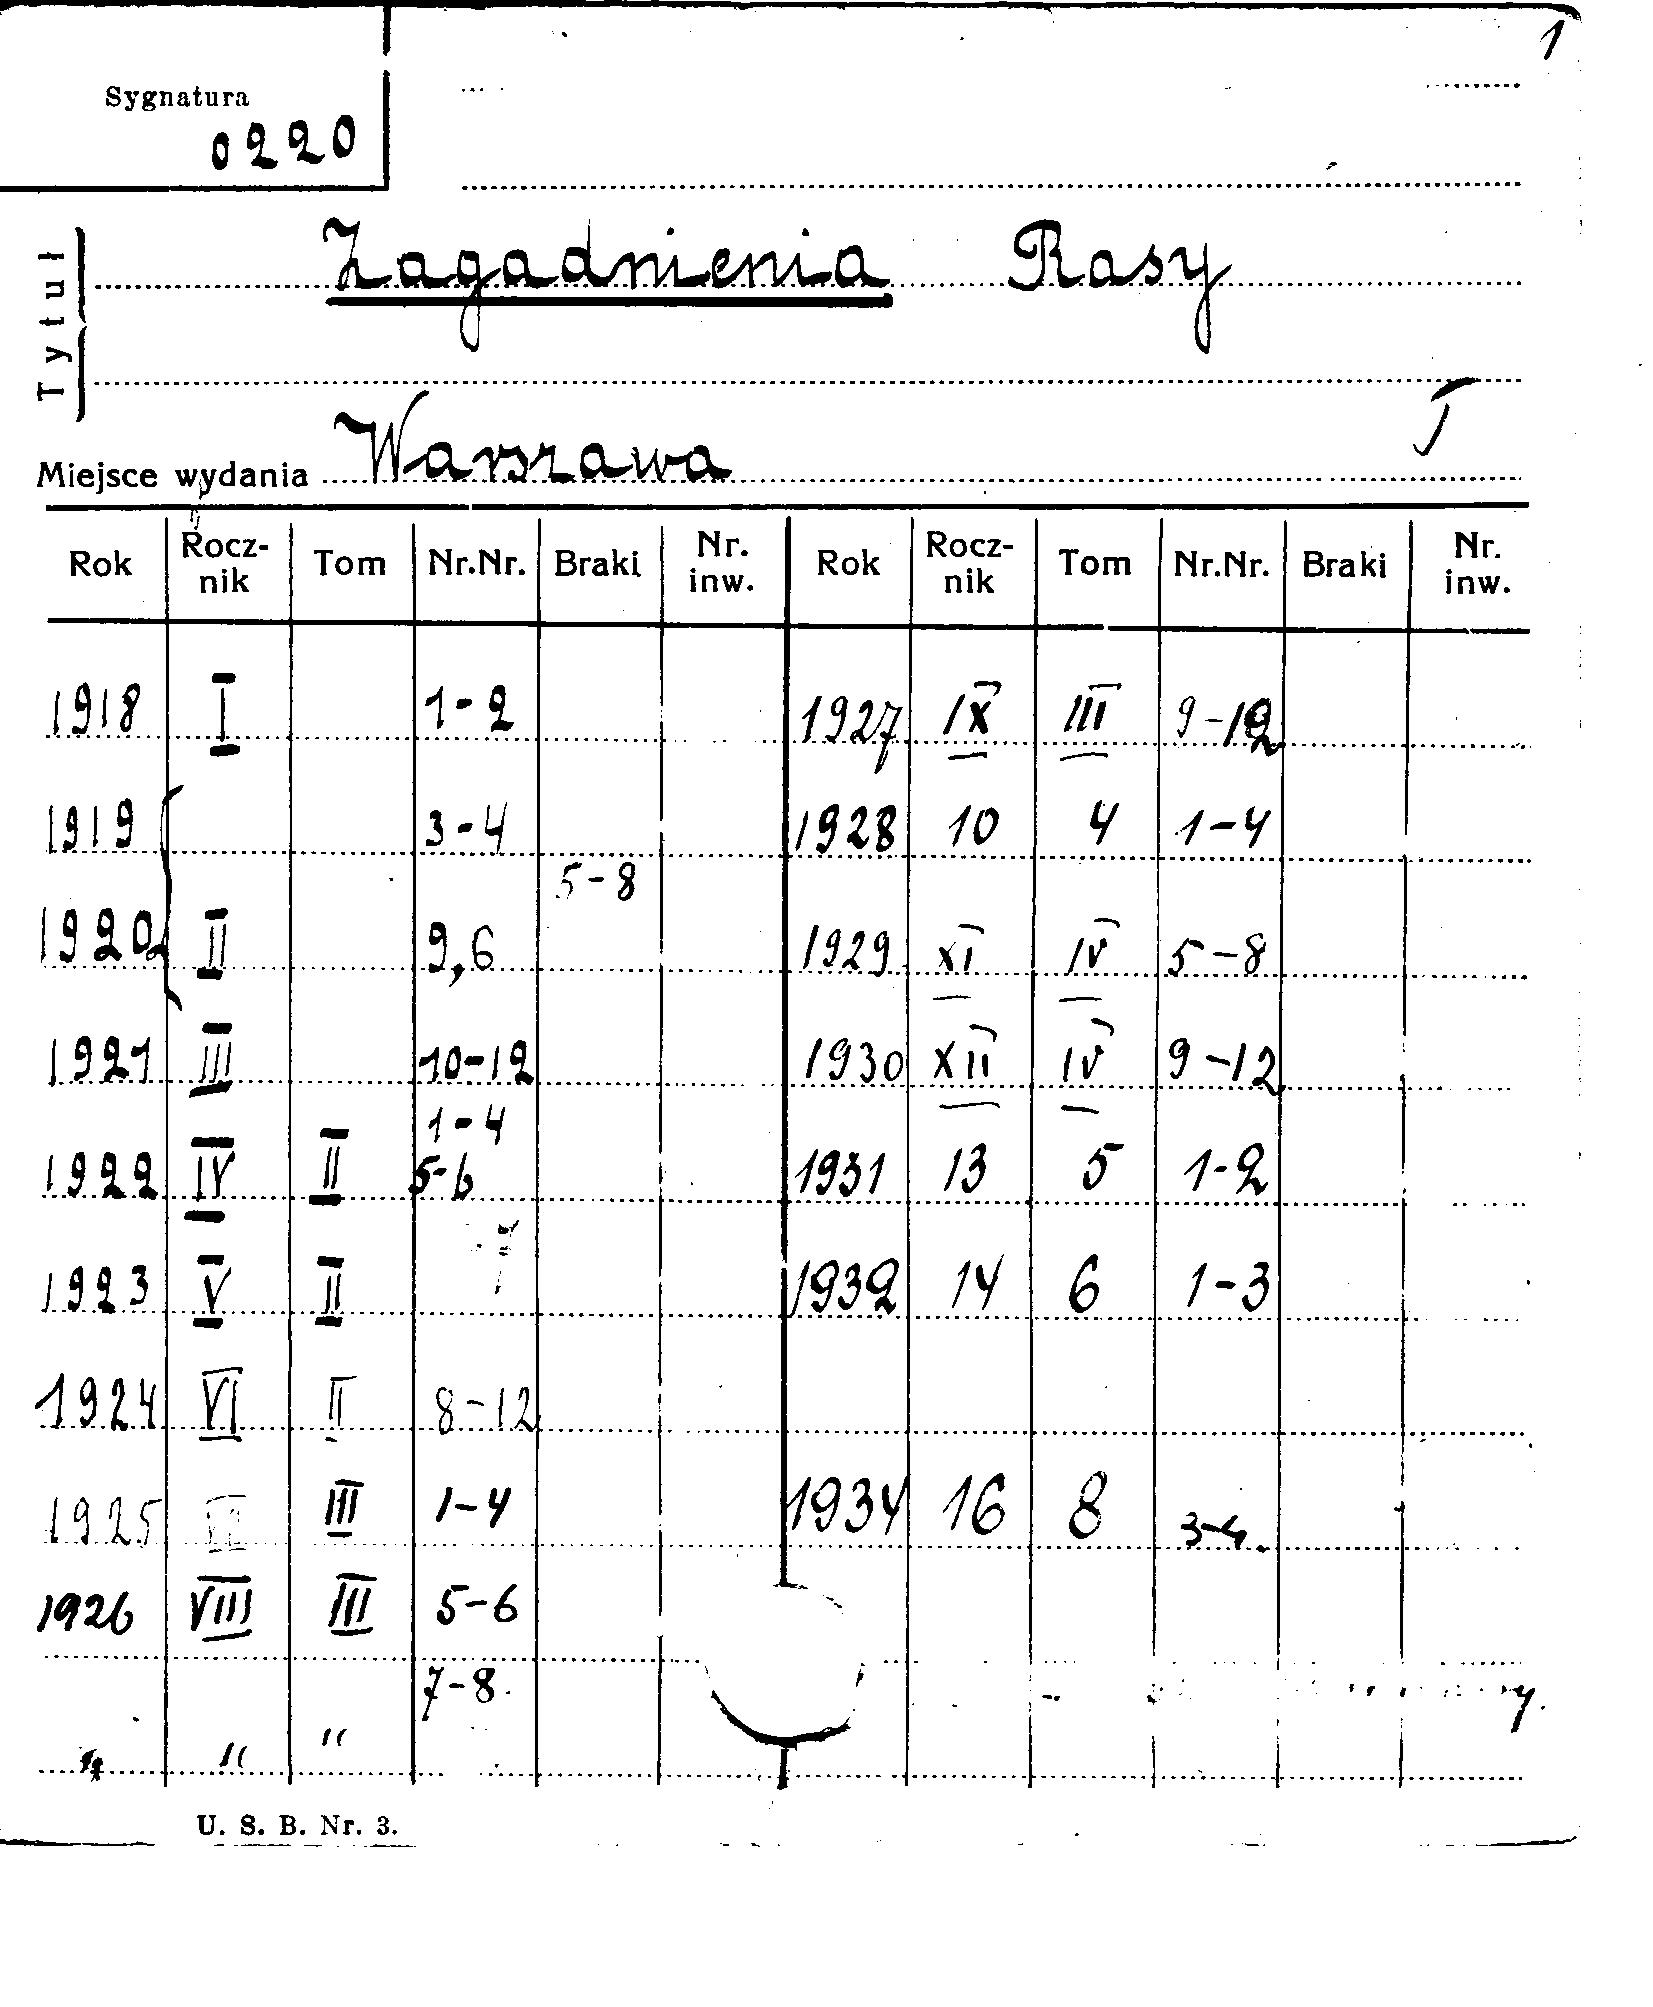 1
Sygnatura
0220
Tytuł
Zagadnienia Rasy
I
Miejsce wydania Warszawa
Rok Rocz-nik Tom Nr.Nr. Braki Nr. inw. Rok Rocz-nik Tom Nr.Nr. Braki Nr. inw.
1918 I 1-2 1927 IX III 9-12
1919 3-4 1928 10 4 1-4
5-8
1920 II 9,6 1929 XI IV 5-8
1921 III 10-12 1930 XII IV 9-12
1-4
1922 IV II 5-6 1931 13 5 1-2
1923 V II 1932 14 6 1-3
1924 VI II 8-12
1925 III 1-4 1934 16 8 3-4.
1926 VIII III 5-6
7-8
" " "
U. S. B. Nr. 3.